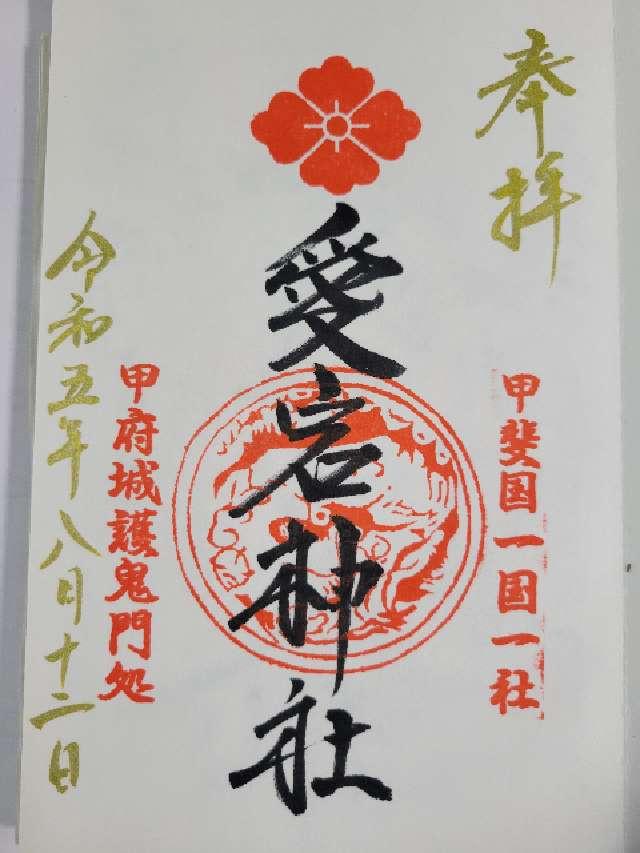 奉拝
甲斐国一国一社
愛宕神社
甲府城護鬼門処
令和五年八月十二日